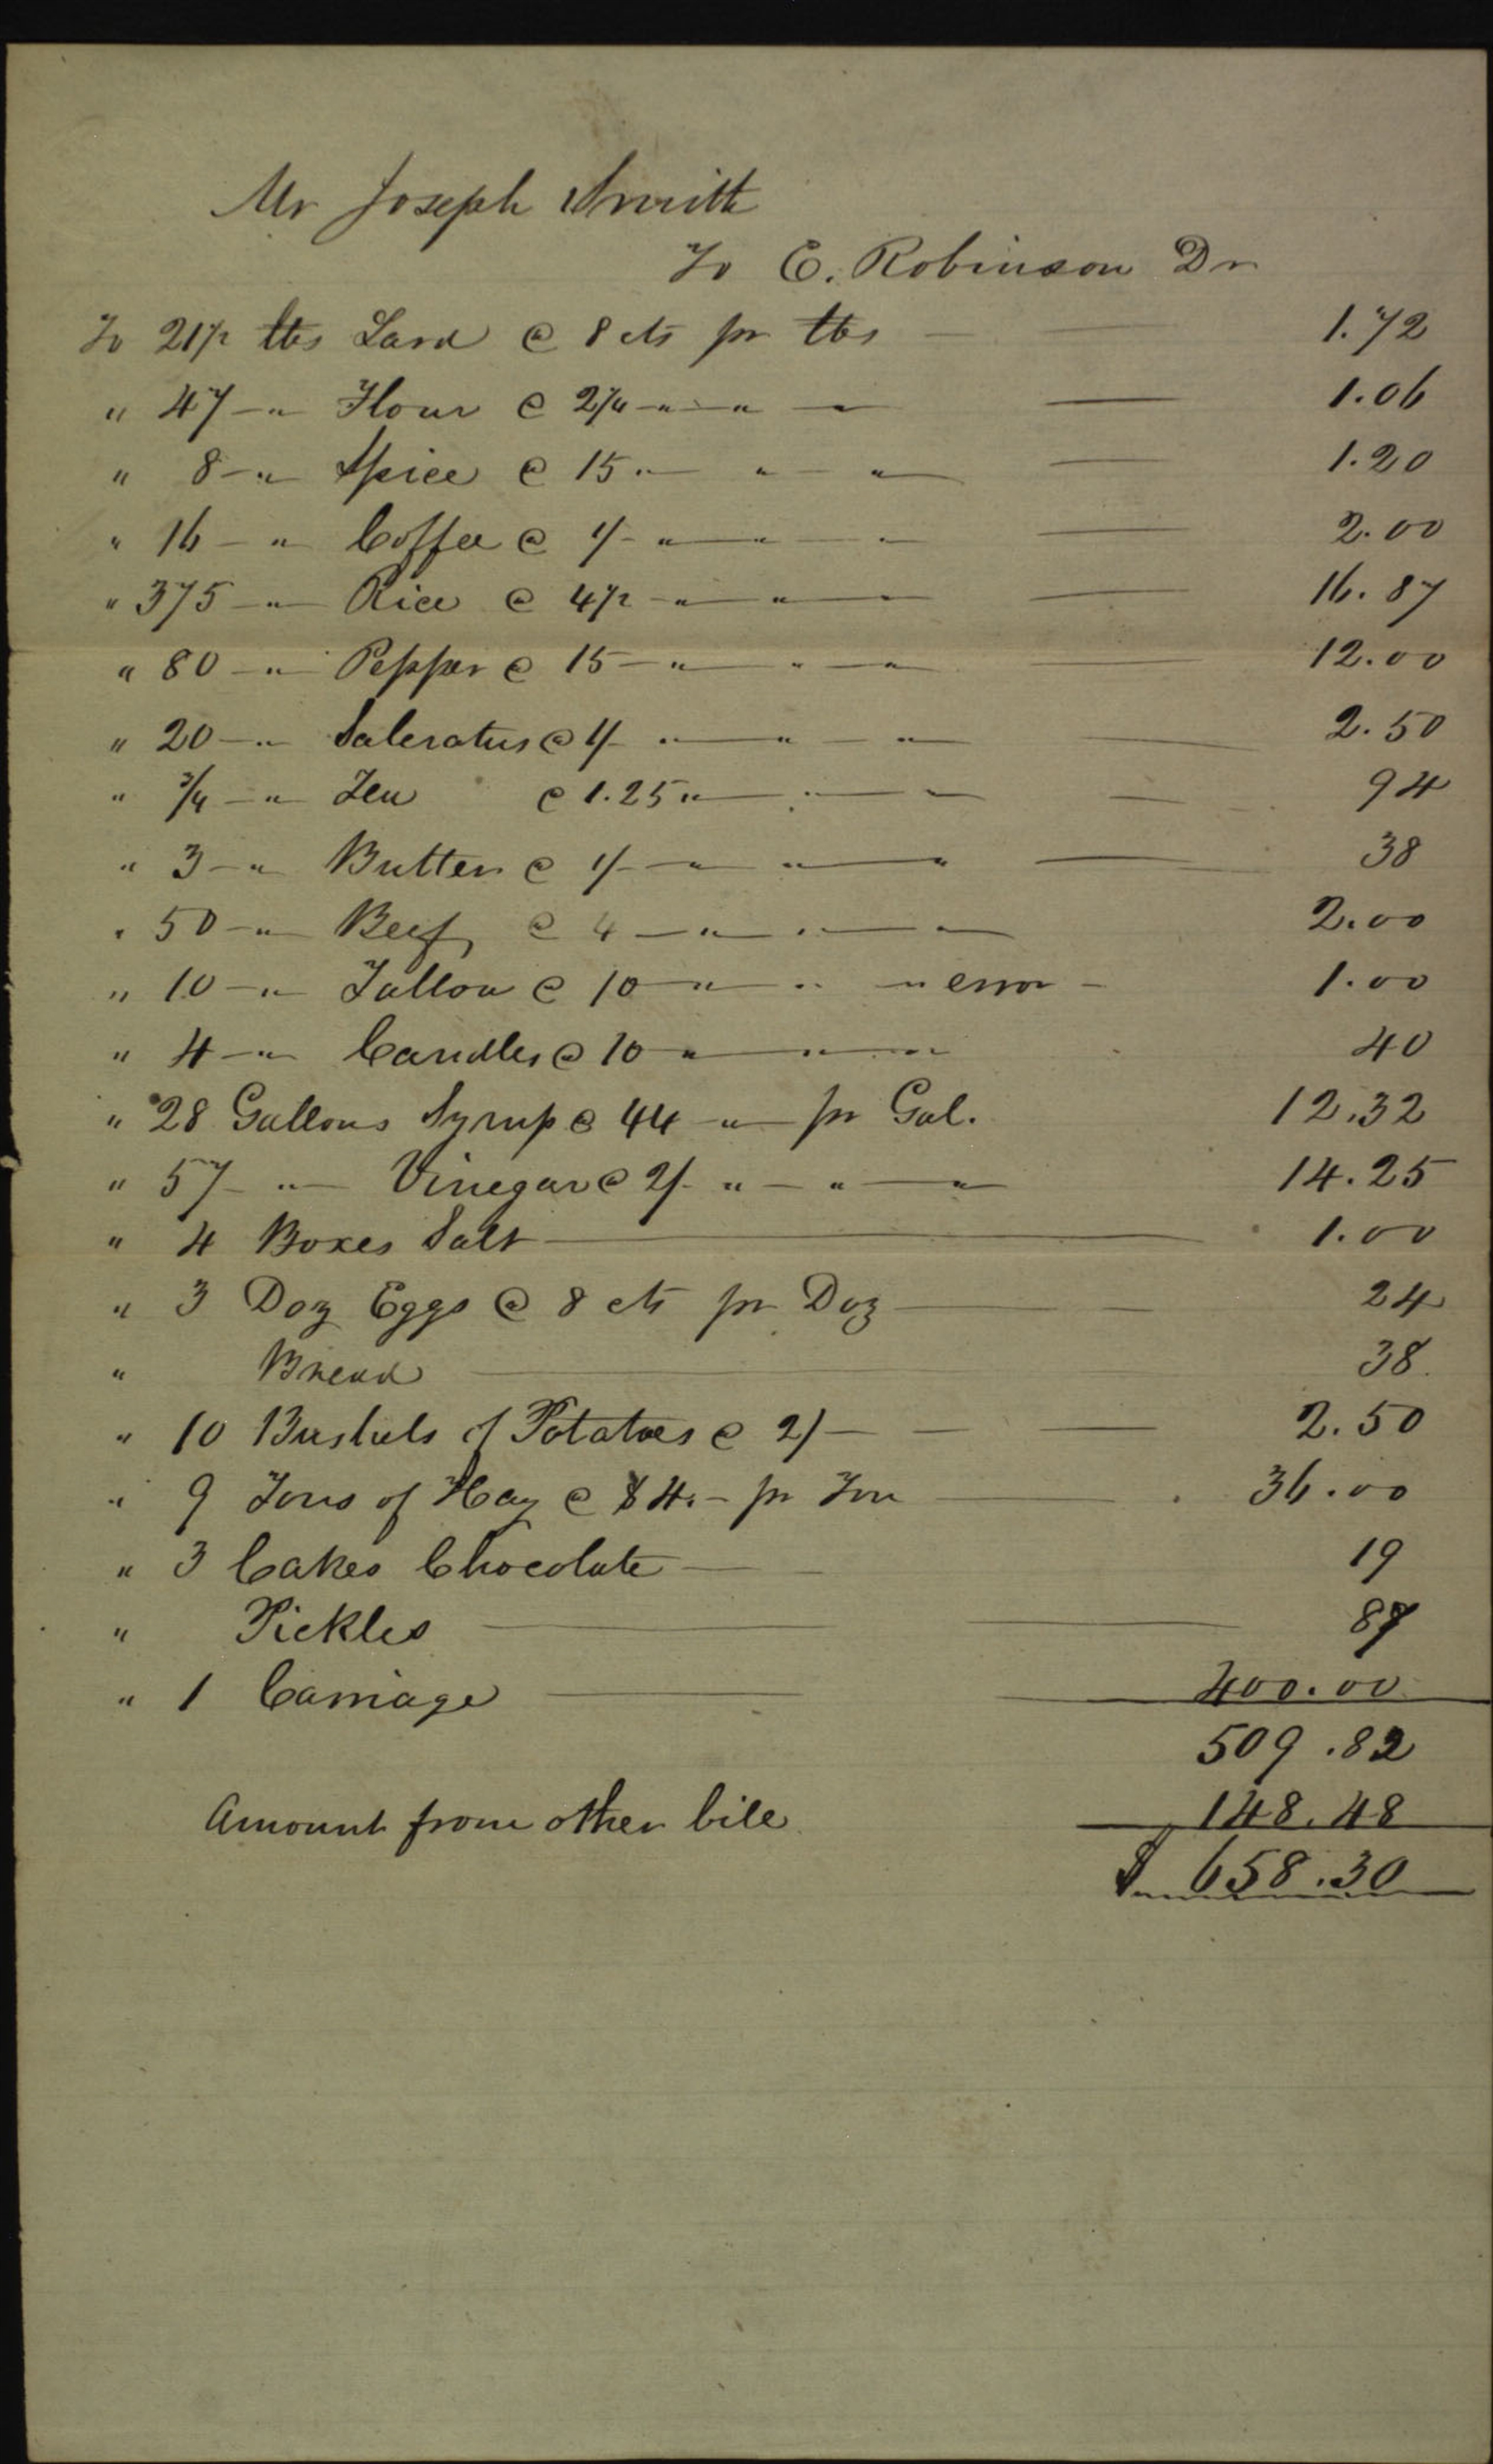 Mr Joseph Smith
To E. Robinson Dr
To 21½ lbs Lard @ 8 cts pr lbs — 1.72
" 47 — " Flour @ 2¼ — " — " — 1.06
" 8 — " Spice @ 15 " — " — " — 1.20
" 16 — " Coffee @ 1/- " — " — " — 2.00
" 375 — " Rice @ 4½ — " — " — 16.87
" 80 — " Pepper @ 15 — " — " — " 12.00
" 20 — " Saleratus @ 1/- " — " — " — 2.50
" ¾ — " Tea @ 1.25 " — " — " — 94
" 3 — " Butter @ 1/- " — " — " — 38
" 50 — " Beef @ 4 — " — " — " 2.00
" 10 — " Tallow @ 10 — " " " error — 1.00
" 4 — " Candles @ 10 " — " — " 40
" 28 Gallons Syrup @ 44 — " — pr Gal. 12.32
" 57 — " — Vinegar @ 2/- " — " — " 14.25
" 4 Boxes Salt — 1.00
" 3 Doz Eggs @ 8 cts pr Doz — 24
" Bread — 38.
" 10 Bushels of Potatoes @ 2/ — 2.50
" 9 Tons of Hay @ $4.- pr Ton — 36.00
" 3 Cakes Chocolate — 19
" Pickles — 87
" 1 Carriage — 400.00
509.82
Amount from other bill 148.48
$ 658.30